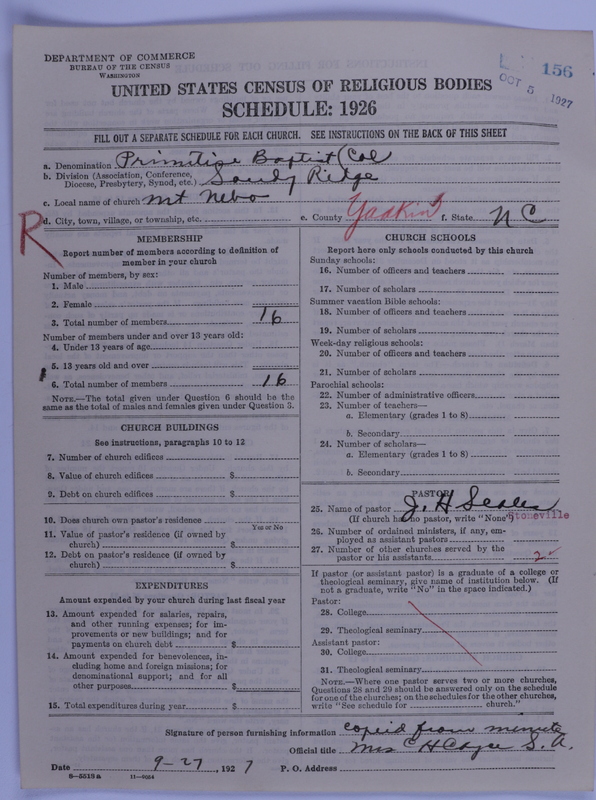 DEPARTMENT OF COMMERCE
BUREAU OF THE CENSUS
WASHINGTON
156
OCT 5 1927
UNITED STATES CENSUS OF RELIGIOUS BODIES
SCHEDULE: 1926
FILL OUT A SEPARATE SCHEDULE FOR EACH CHURCH. SEE INSTRUCTIONS ON THE BACK OF THIS SHEET
a. Denomination Primitive Baptist (Col
b. Division (Association, Conference,
Diocese, Presbytery, Synod, etc.) Sandy Ridge
c. Local name of church Mt Nebo
d. City, town, village, or township, etc. e. County Yadkin f. State N C
R
MEMBERSHIP
Report number of members according to definition of
member in your church
Number of members, by sex:
1. Male
2. Female
3. Total number of members 16
Number of members under and over 13 years old:
4. Under 13 years of age
5. 13 years old and over
6. Total number of members 16
NOTE.—The total given under Question 6 should be the
same as the total of males and females given under Question 3.
CHURCH BUILDINGS
See instructions, paragraphs 10 to 12
7. Number of church edifices
8. Value of church edifices $
9. Debt on church edifices $
10. Does church own pastor's residence
Yes or No
11. Value of pastor's residence (if owned by
church) $
12. Debt on pastor's residence (if owned by
church) $
EXPENDITURES
Amount expended by your church during last fiscal year
13. Amount expended for salaries, repairs,
and other running expenses; for im-
provements or new buildings; and for
payments on church debt $
14. Amount expended for benevolences, in-
cluding home and foreign missions; for
denominational support; and for all
other purposes $
15. Total expenditures during year $
CHURCH SCHOOLS
Report here only schools conducted by this church
Sunday schools:
16. Number of officers and teachers
17. Number of scholars
Summer vacation Bible schools:
18. Number of officers and teachers
19. Number of scholars
Week-day religious schools:
20. Number of officers and teachers
21. Number of scholars
Parochial schools:
22. Number of administrative officers
23. Number of teachers—
a. Elementary (grades 1 to 8)
b. Secondary
24. Number of scholars—
a. Elementary (grades 1 to 8)
b. Secondary
PASTOR
25. Name of pastor J. H
(If church has no pastor, write "None") Stoneville
26. Number of ordained ministers, if any, em-
ployed as assistant pastors
27. Number of other churches served by the
pastor or his assistants 2
If pastor (or assistant pastor) is a graduate of a college or
theological seminary, give name of institution below. (If
not a graduate, write "No" in the space indicated.)
Pastor:
28. College
29. Theological seminary
Assistant pastor:
30. College
31. Theological seminary
NOTE.—Where one pastor serves two or more churches,
Questions 28 and 29 should be answered only on the schedule
for one of the churches; on the schedules for the other churches,
write "See schedule for church."
Signature of person furnishing information copied from minute
Official title Mrs C H Cayce S. A.
Date 9-27, 1927 P. O. Address
8-5513a 11-9034